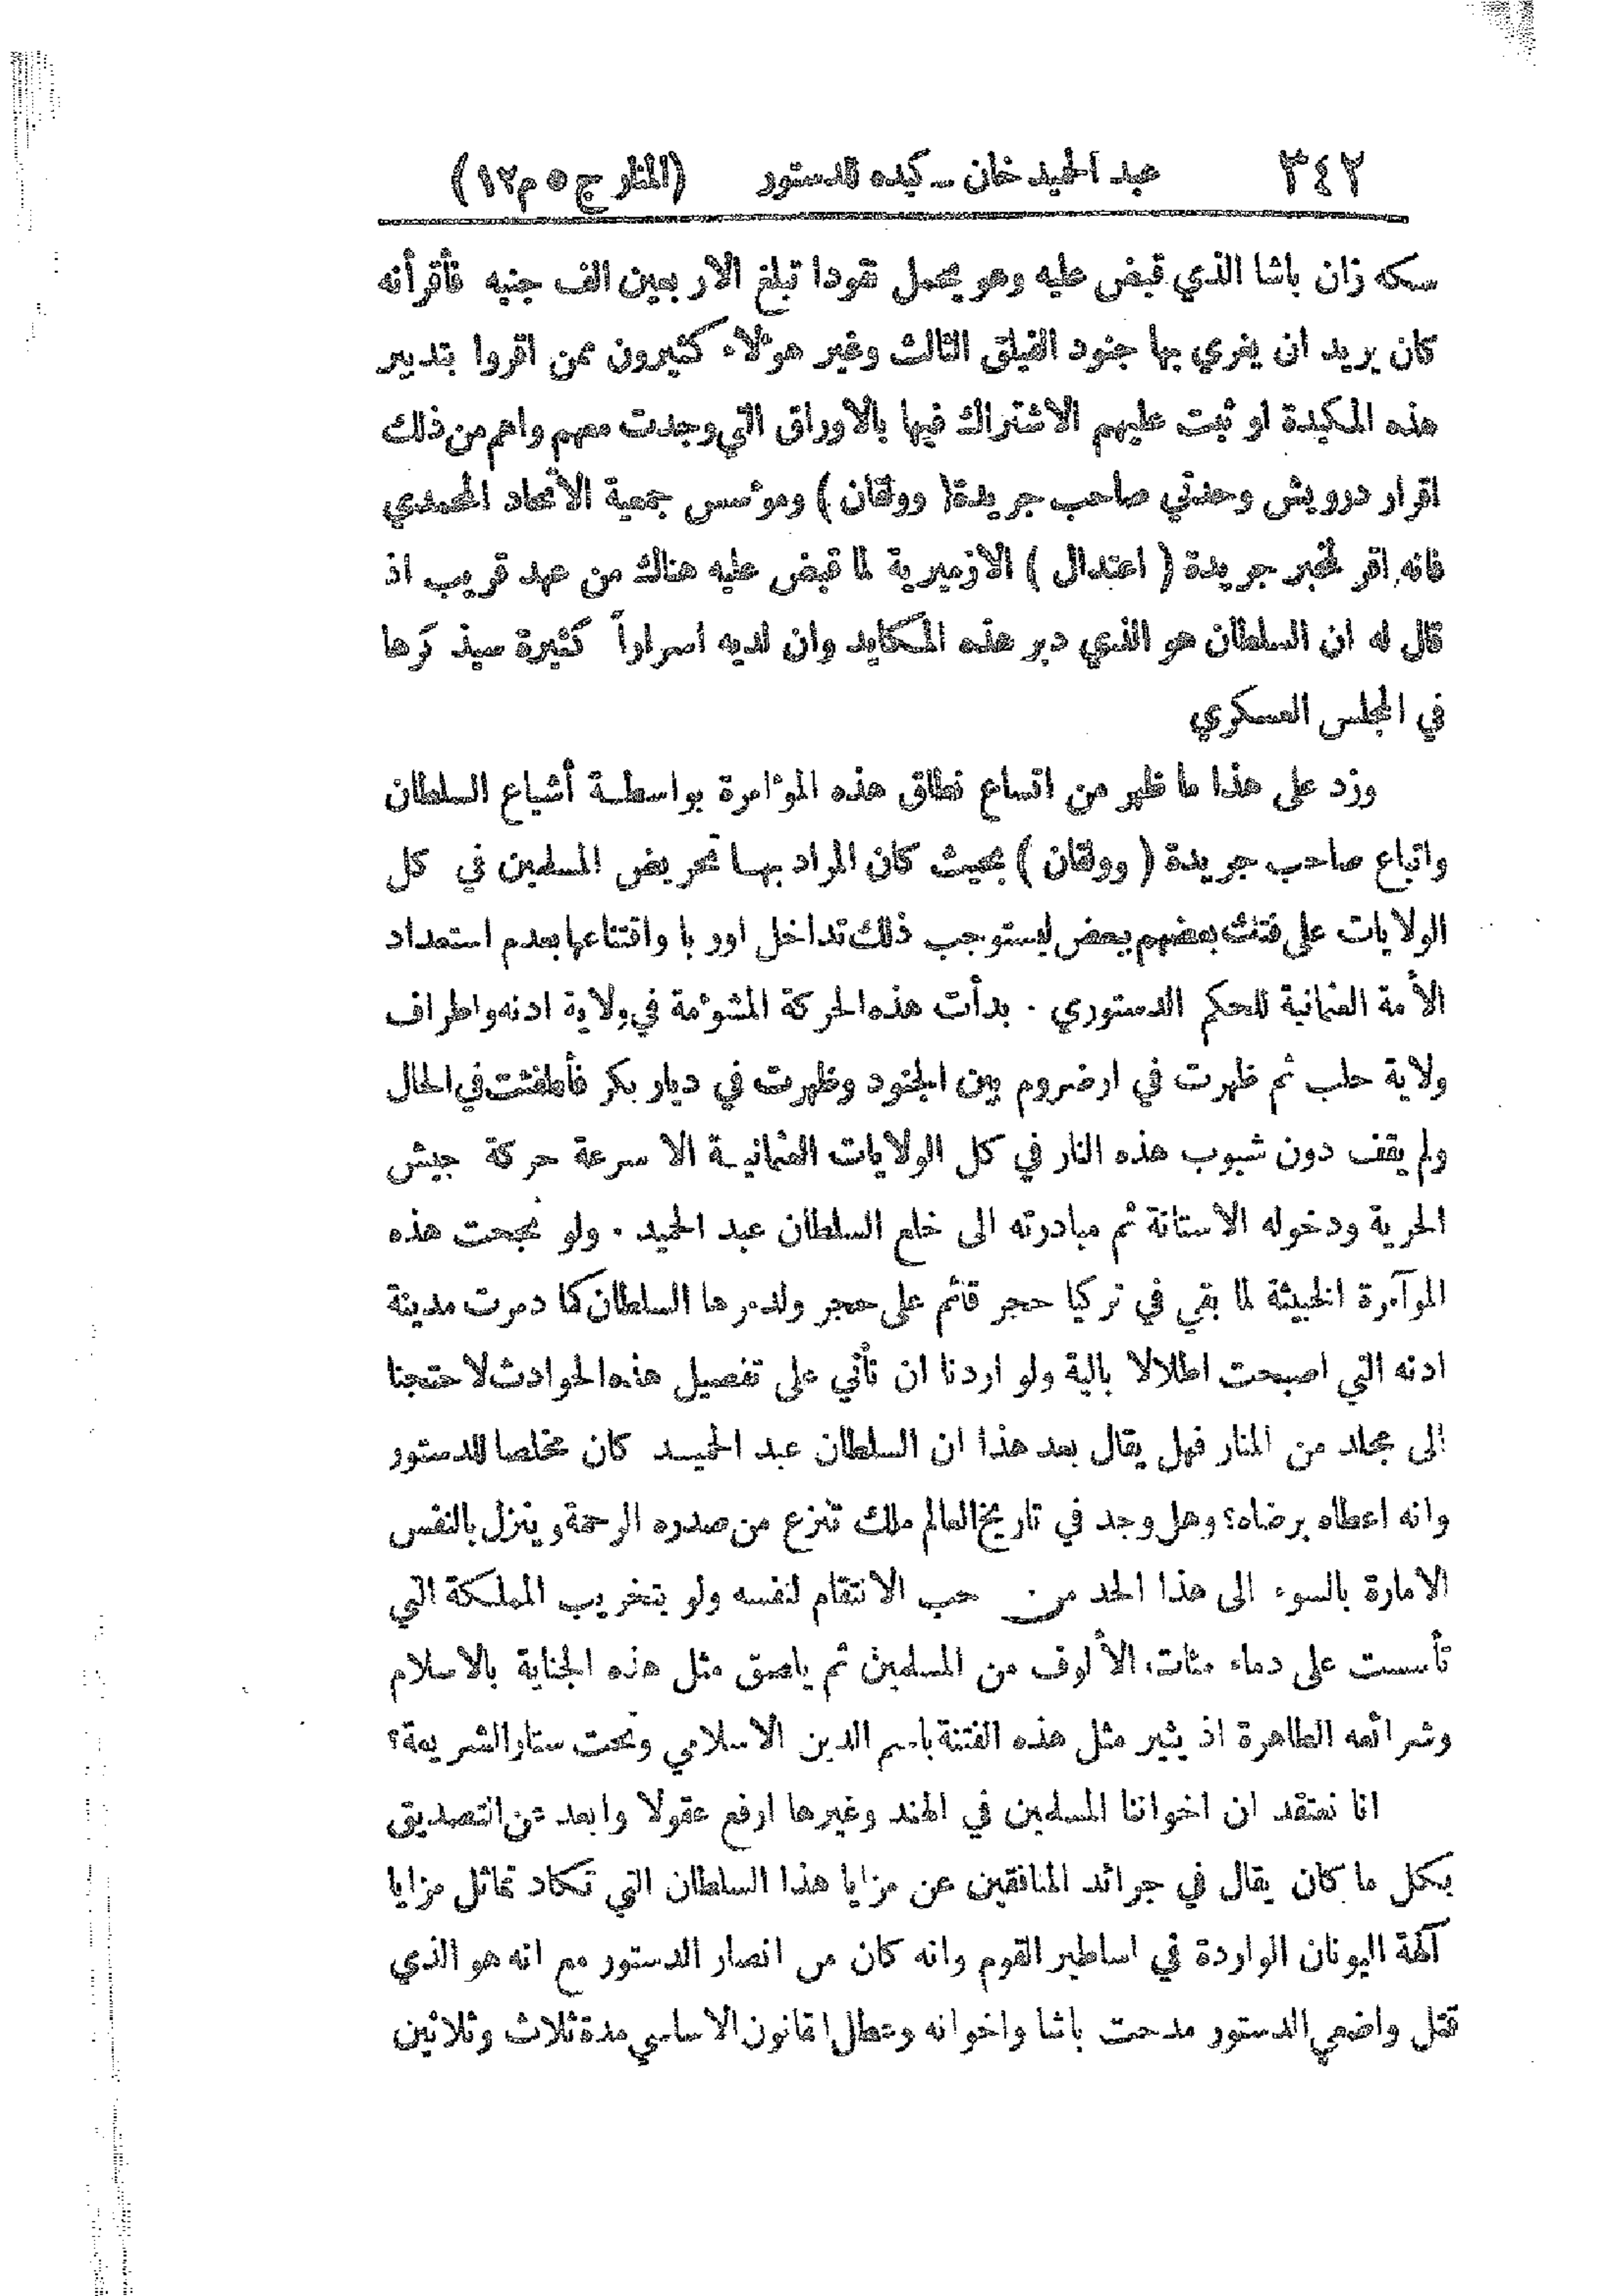 ٣٤٢ عبد الحميد خان ـ كيده للدستور (المنار ج ٥ م ١٢)
سكه زان باشا الذي قبض عليه وهو يحمل نقودا تبلغ الاربعين الف جنيه فأقر أنه
كان يريد ان يغري بها جنود الفيلق الثالث وغير هؤلاء كثيرون ممن اقروا بتدبير
هذه المكيدة او ثبت عليهم الاشتراك فيها بالاوراق التي وجدت معهم واهم من ذلك
اقرار درويش وحدتي صاحب جريدة ( وولقان ) ومؤسس جمعية الاتحاد المحمدي
فانه اقر لمخبر جريدة ( اعتدال ) الازميرية لما قبض عليه هناك من عهد قريب اذ
قال له ان السلطان هو الذي دبر هذه المكايد وان لديه اسراراً كثيرة سيذكرها
في المجلس العسكري
وزد على هذا ما ظهر من اتساع نطاق هذه المؤامرة بواسطة أشياع السلطان
واتباع صاحب جريدة ( وولقان ) بحيث كان المراد بها تحريض المسلمين في كل
الولايات على فتك بعضهم ببعض ليستوجب ذلك تداخل اوربا واقتناعها بعدم استعداد
الأمة العثمانية للحكم الدستوري . بدأت هذه الحركة المشؤمة في ولاية ادنه واطراف
ولاية حلب ثم ظهرت في ارضروم بين الجنود وظهرت في ديار بكر فأطفئت في الحال
ولم يقف دون شبوب هذه النار في كل الولايات العثمانية الا سرعة حركة جيش
الحرية ودخوله الاستانة ثم مبادرته الى خلع السلطان عبد الحميد . ولو نجحت هذه
الموآمرة الخبيثة لما بقي في تركيا حجر قائم على حجر ولدمرها السلطان كما دمرت مدينة
ادنه التي اصبحت اطلالا بالية ولو اردنا ان نأتي على تفصيل هذه الحوادث لاحتجنا
الى مجلد من المنار فهل يقال بعد هذا ان السلطان عبد الحميد كان مخلصا للدستور
وانه اعطاه برضاه؟ وهل وجد في تاريخ العالم ملك تنزع من صدره الرحمة وينزل بالنفس
الامارة بالسوء الى هذا الحد من حب الانتقام لنفسه ولو بتخريب المملكة التي
تأسست على دماء مئات الألوف من المسلمين ثم يلصق مثل هذه الجناية بالاسلام
وشرائعه الطاهرة اذ يثير مثل هذه الفتنة باسم الدين الاسلامي وتحت ستار الشريعة؟
انا نعتقد ان اخواننا المسلمين في الهند وغيرها ارفع عقولا وابعد عن التصديق
بكل ما كان يقال في جرائد المنافقين عن مزايا هذا السلطان التي تكاد تماثل مزايا
آلهة اليونان الواردة في اساطير القوم وانه كان من انصار الدستور مع انه هو الذي
قتل واضعي الدستور مدحت باشا واخوانه وعطل القانون الاساسي مدة ثلاث وثلاثين